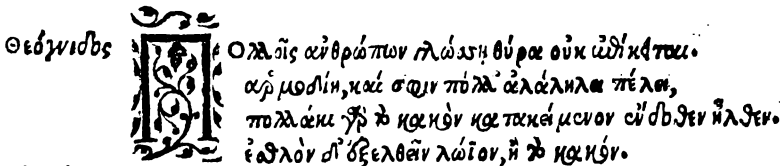 Θεόγνιδος
Πολλοῖς ἀνθρώπων γλώσσῃ θύρα οὐκ ἐπίκεινται
ἁρμοδίη, καί σφιν πόλλ' ἀλάλητα πέλει,
πολλάκι γὰρ τὸ κακὸν κατακείμενον ἔνδοθεν ἦλθεν.
ἐσθλὸν δ' ἐξελθεῖν λώϊον, ἢ τὸ κακόν.